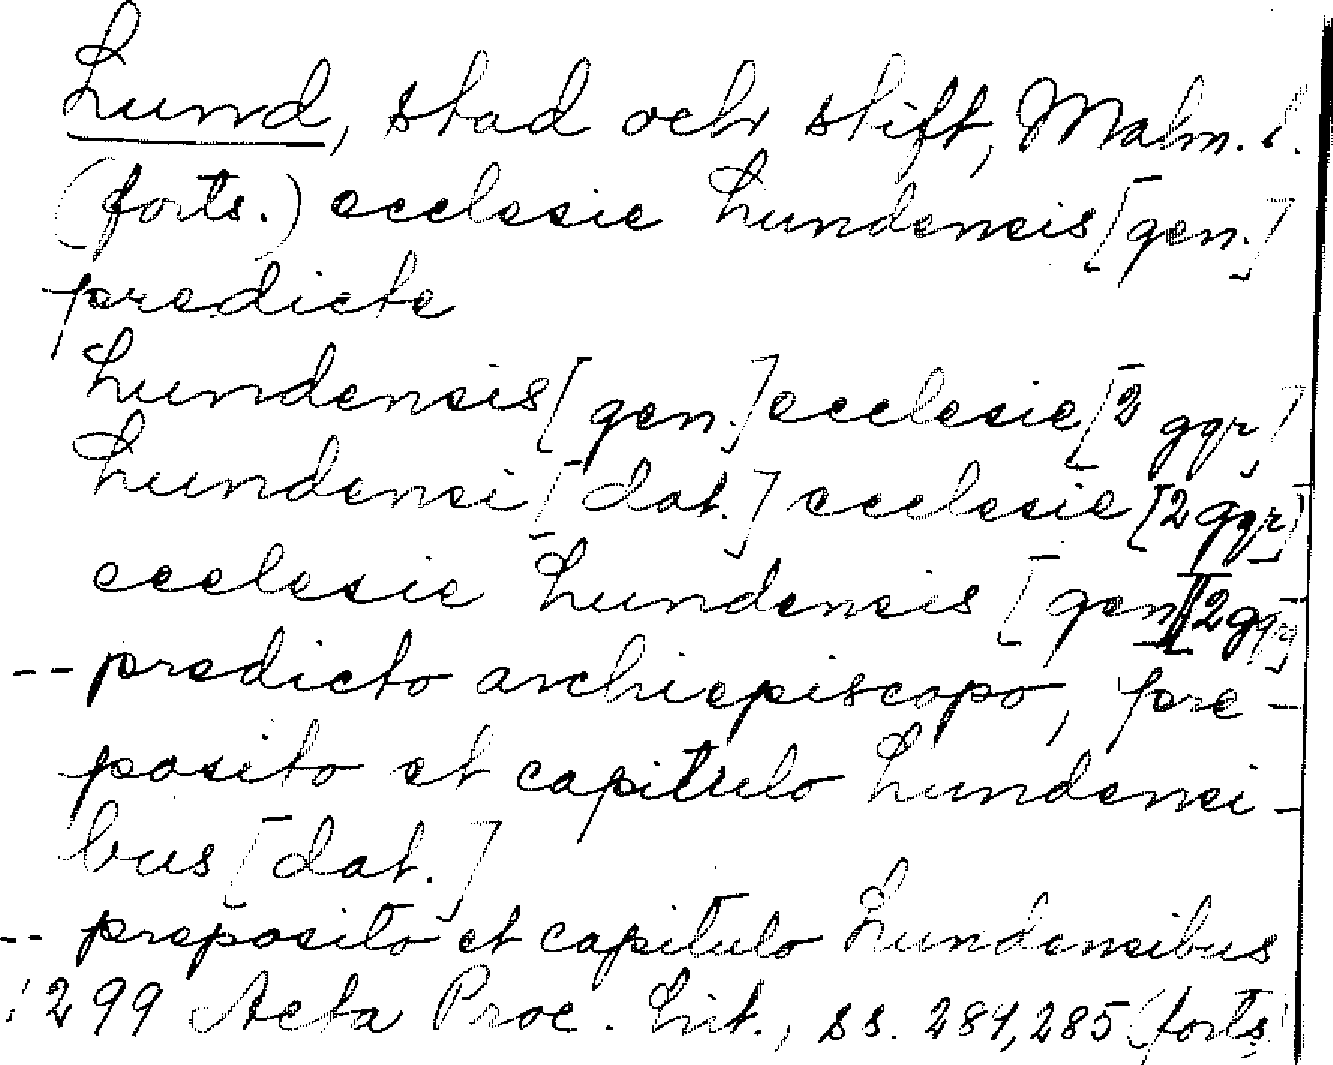 Lund, stad och stift, Malm. l.
(forts.) ecclesie Lundensis [gen.]
predicte
Lundensis [gen.] ecclesie [2 ggr]
Lundensi [dat.] ecclesie [2 ggr]
ecclesie Lundensis [gen.] [2 ggr]
-- predicto archiepiscopo, pre-
posito et capitulo Lundensi-
bus [dat.]
-- preposito et capitulo Lundensibus
1299 Acta Proc. Lit., ss. 284, 285 (forts.)